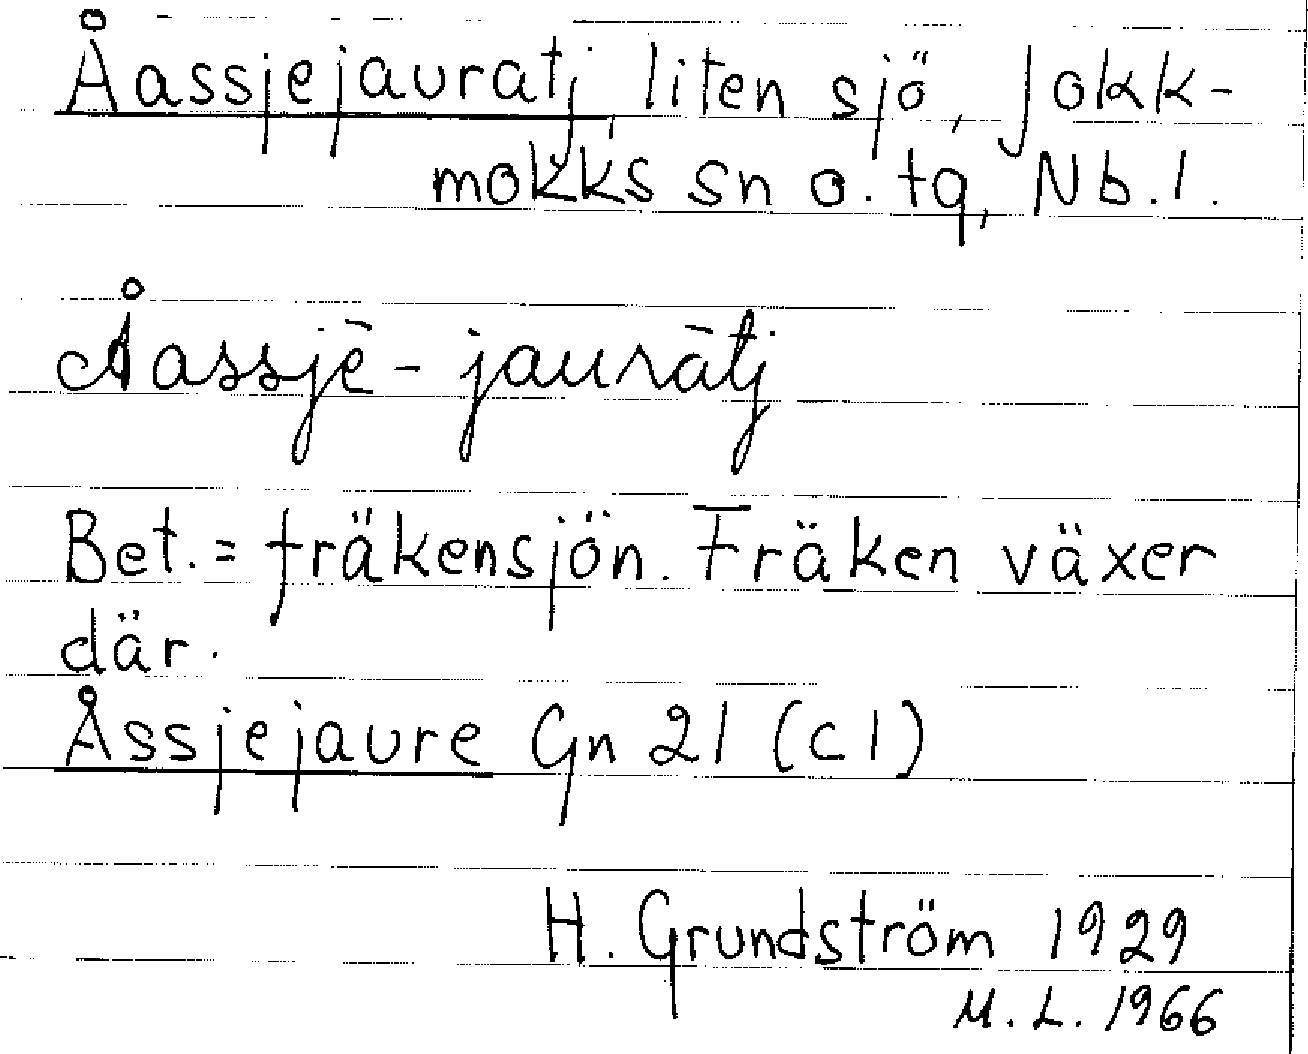 Åassjejauratj, liten sjö, Jokk-
mokks sn o. tg, Nb. l.
Åassjē-jaurātj
Bet. = fräkensjön. Fräken växer
där.
Åssjejaure Gn 21 (c1)
H. Grundström 1929
M. L. 1966